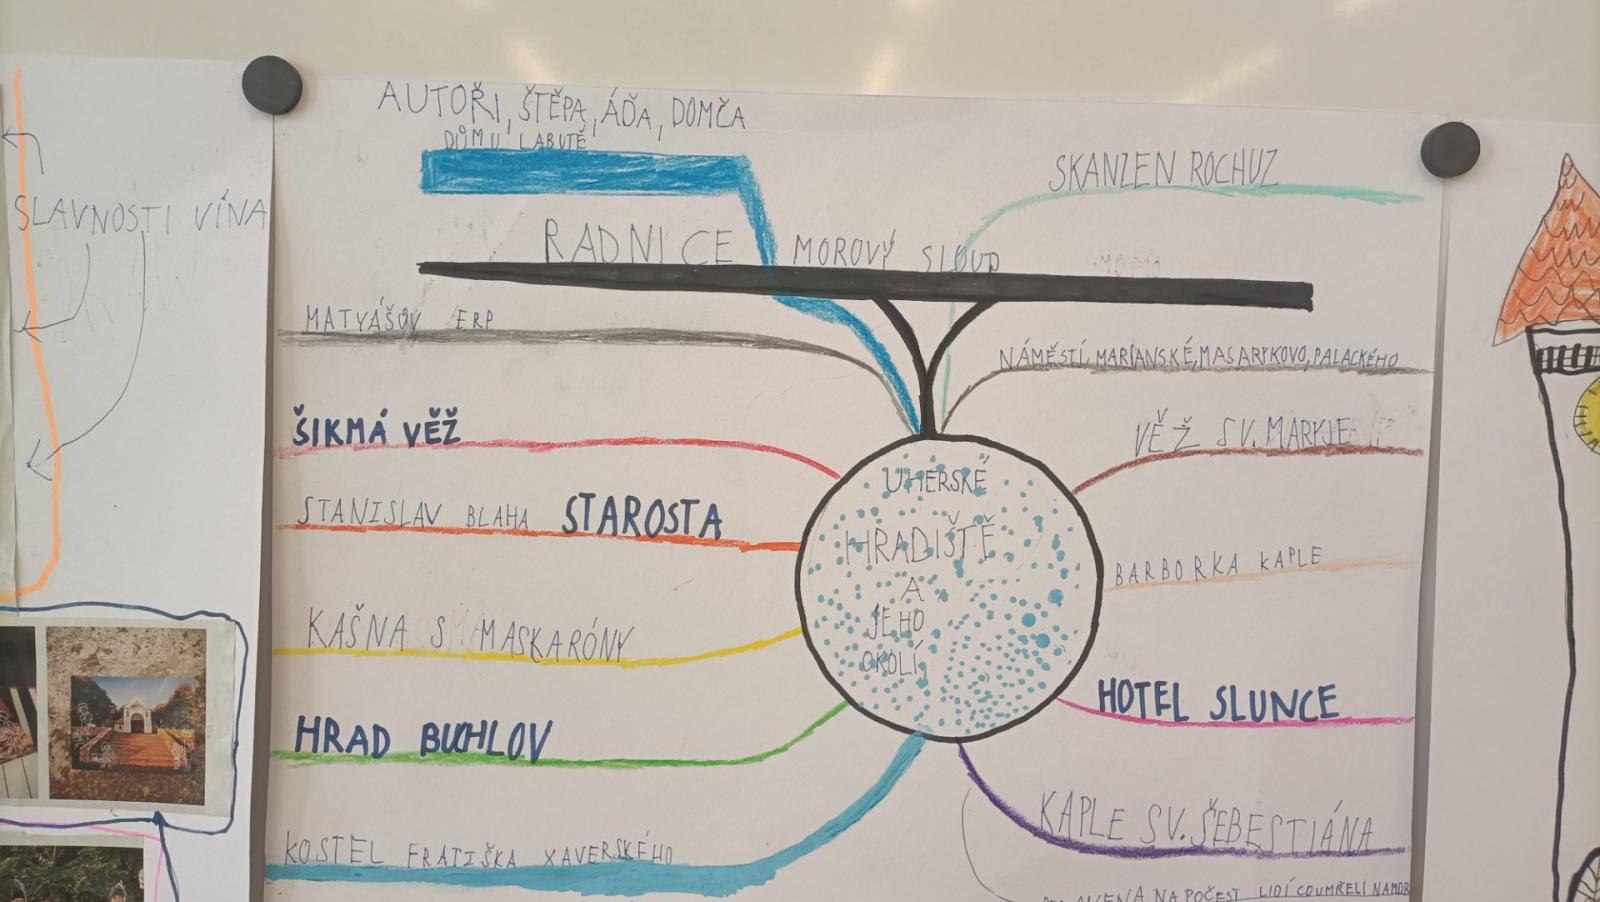 AUTOŘI, ŠTĚPA, ÁĎA, DOMČA
DŮMU LABUTĚ
SKANZEN ROCHUZ
SLAVNOSTI VÍNA
RADNICE MOROVÝ SLOUP
MATYÁŠŮV ERP
NÁMĚSTÍ, MARIANSKÉ, MASARYKOVO, PALACKÉHO
ŠIKMÁ VĚŽ
VĚŽ SV. MARKJE
STANISLAV BLAHA STAROSTA
UHERSKÉ
HRADIŠTĚ
A
JEHO
OKOLÍ
BARBORKA KAPLE
KAŠNA S MASKARÓNY
HRAD BUCHLOV
HOTEL SLUNCE
KAPLE SV. ŠEBESTIÁNA
KOSTEL FRATIŠKA XAVERSKÉHO
NA POČEST LIDÍ COUMŘELI NAMOR